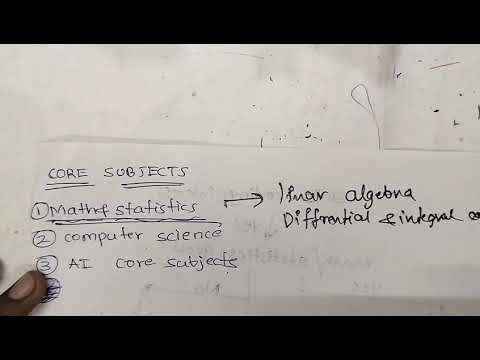 CORE SUBJECTS
① Math & statistics → linear algebra
Diffrential & integral co
② computer science
③ AI core subjects